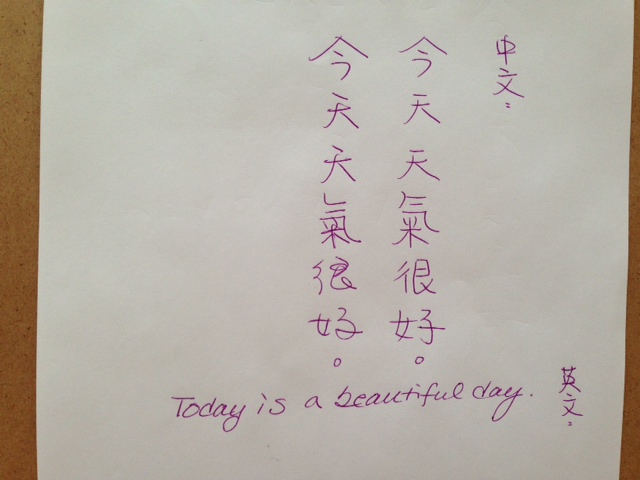 中文：
今天天氣很好。
今天天氣很好。
英文：
Today is a beautiful day.